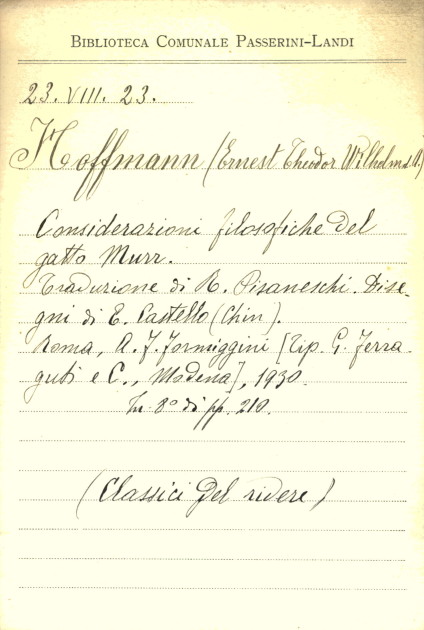 BIBLIOTECA COMUNALE PASSERINI-LANDI
23. VIII. 23.
Hoffmann (Ernest Theodor Wilhelm A.)
Considerazioni filosofiche del
gatto Murr.
Traduzione di R. Pisaneschi. Dise-
gni di E. Castello (Chin).
Roma, A. F. Formiggini [Tip. G. Ferra-
guti e C., Modena], 1930.
In-8° di pp. 210.
(Classici del ridere)